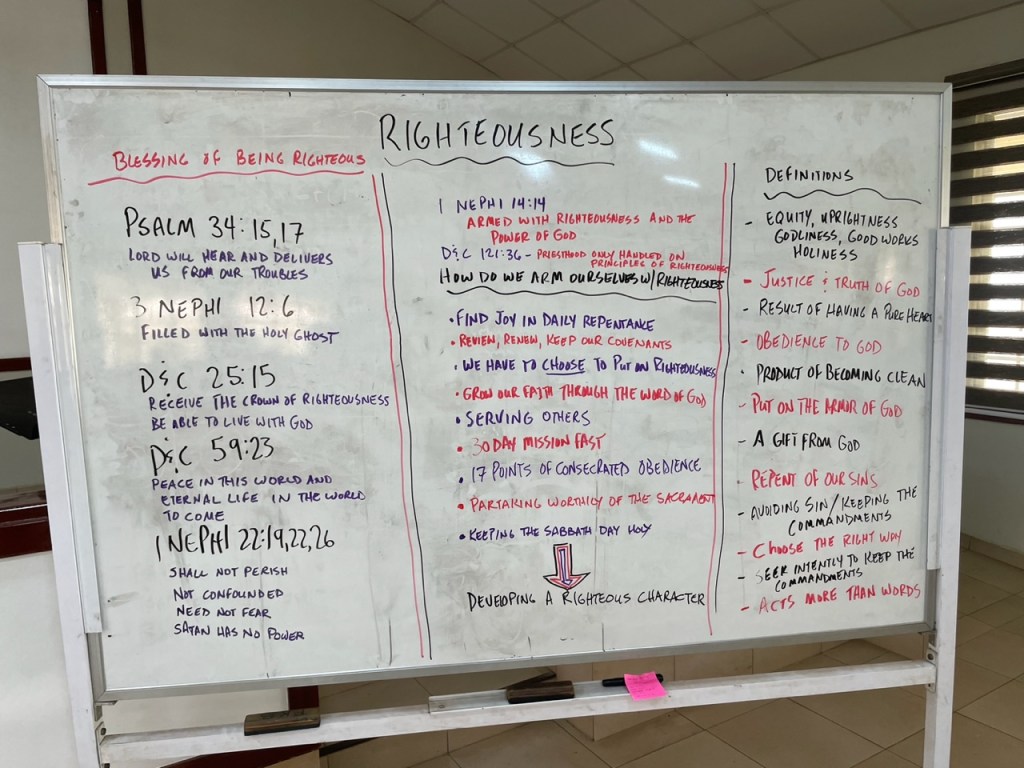 RIGHTEOUSNESS
BLESSING OF BEING RIGHTEOUS
PSALM 34:15,17
LORD WILL HEAR AND DELIVERS
US FROM OUR TROUBLES
3 NEPHI 12:6
FILLED WITH THE HOLY GHOST
D&C 25:15
RECEIVE THE CROWN OF RIGHTEOUSNESS
BE ABLE TO LIVE WITH GOD
D&C 59:23
PEACE IN THIS WORLD AND
ETERNAL LIFE IN THE WORLD
TO COME
1 NEPHI 22:19,22,26
SHALL NOT PERISH
NOT CONFOUNDED
NEED NOT FEAR
SATAN HAS NO POWER
1 NEPHI 14:14
ARMED WITH RIGHTEOUSNESS AND THE
POWER OF GOD
D&C 121:36 - PRIESTHOOD ONLY HANDLED ON
PRINCIPLES OF RIGHTEOUSNESS
HOW DO WE ARM OURSELVES W/RIGHTEOUSNESS
• FIND JOY IN DAILY REPENTANCE
• REVIEW, RENEW, KEEP OUR COVENANTS
• WE HAVE TO CHOOSE TO PUT ON RIGHTEOUSNESS
• GROW OUR FAITH THROUGH THE WORD OF GOD
• SERVING OTHERS
• 30 DAY MISSION FAST
• 17 POINTS OF CONSECRATED OBEDIENCE
• PARTAKING WORTHILY OF THE SACRAMENT
• KEEPING THE SABBATH DAY HOLY
DEVELOPING A RIGHTEOUS CHARACTER
DEFINITIONS
- EQUITY, UPRIGHTNESS
GODLINESS, GOOD WORKS
HOLINESS
- JUSTICE & TRUTH OF GOD
- RESULT OF HAVING A PURE HEART
- OBEDIENCE TO GOD
• PRODUCT OF BECOMING CLEAN
- PUT ON THE ARMOR OF GOD
- A GIFT FROM GOD
- REPENT OF OUR SINS
- AVOIDING SIN/KEEPING THE
COMMANDMENTS
- CHOOSE THE RIGHT WAY
- SEEK INTENTLY TO KEEP THE
COMMANDMENTS
- ACTS MORE THAN WORDS